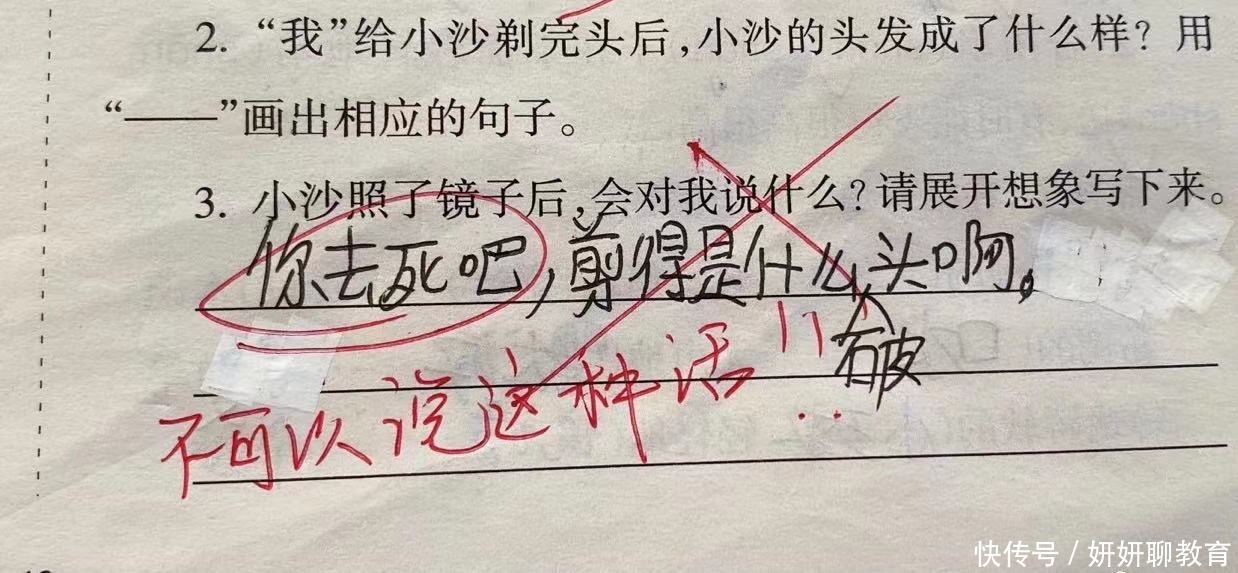 2. “我”给小沙剃完头后,小沙的头发成了什么样？用
“——”画出相应的句子。
3. 小沙照了镜子后,会对我说什么？请展开想象写下来。
你去死吧,剪得是什么破头啊。
不可以说这种话!!
快传号 / 妍妍聊教育